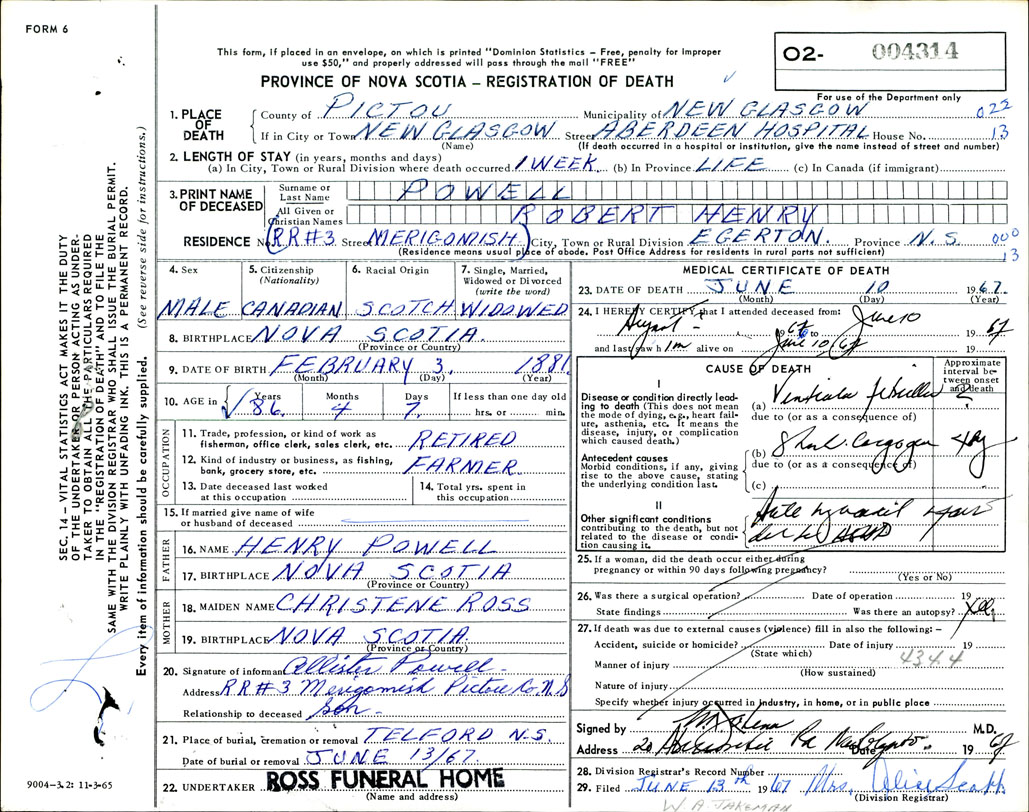 FORM 6
This form, if placed in an envelope, on which is printed "Dominion Statistics – Free, penalty for improper
use $50," and properly addressed will pass through the mail "FREE"
PROVINCE OF NOVA SCOTIA – REGISTRATION OF DEATH
O2- 004314
For use of the Department only
1. PLACE OF DEATH
County of PICTOU Municipality of NEW GLASGOW 022
If in City or Town NEW GLASGOW Street ABERDEEN HOSPITAL House No. 13
(Name) (If death occurred in a hospital or institution, give the name instead of street and number)
2. LENGTH OF STAY (in years, months and days)
(a) In City, Town or Rural Division where death occurred 1 WEEK (b) In Province LIFE (c) In Canada (if immigrant)
3. PRINT NAME OF DECEASED
Surname or Last Name POWELL
All Given or Christian Names ROBERT HENRY
RESIDENCE No. (RR#3 Street MERIGOMISH) City, Town or Rural Division EGERTON. Province N.S. 000
(Residence means usual place of abode. Post Office Address for residents in rural parts not sufficient) 13
4. Sex MALE
5. Citizenship (Nationality) CANADIAN
6. Racial Origin SCOTCH
7. Single, Married, Widowed or Divorced (write the word) WIDOWED
8. BIRTHPLACE NOVA SCOTIA
(Province or Country)
9. DATE OF BIRTH FEBRUARY 3. 1881
(Month) (Day) (Year)
10. AGE in Years 86. Months 4 Days 7. If less than one day old hrs. or min.
OCCUPATION
11. Trade, profession, or kind of work as fisherman, office clerk, sales clerk, etc. RETIRED
12. Kind of industry or business, as fishing, bank, grocery store, etc. FARMER
13. Date deceased last worked at this occupation
14. Total yrs. spent in this occupation
15. If married give name of wife or husband of deceased
FATHER
16. NAME HENRY POWELL
17. BIRTHPLACE NOVA SCOTIA
(Province or Country)
MOTHER
18. MAIDEN NAME CHRISTENE ROSS
19. BIRTHPLACE NOVA SCOTIA
(Province or Country)
20. Signature of informant Allister Powell
Address RR#3 Merigomish Pictou Co. N.S
Relationship to deceased Son
21. Place of burial, cremation or removal TELFORD N.S.
Date of burial or removal JUNE 13/67.
22. UNDERTAKER ROSS FUNERAL HOME
(Name and address)
MEDICAL CERTIFICATE OF DEATH
23. DATE OF DEATH JUNE 10 1967.
(Month) (Day) (Year)
24. I HEREBY CERTIFY that I attended deceased from:
1967 to June 10 1967
and last saw him alive on June 10/67 19
CAUSE OF DEATH
Approximate interval between onset and death
I
Disease or condition directly leading to death (This does not mean the mode of dying, e.g., heart failure, asthenia, etc. It means the disease, injury, or complication which caused death.)
(a)
due to (or as a consequence of)
Antecedent causes
Morbid conditions, if any, giving rise to the above cause, stating the underlying condition last.
(b)
due to (or as a consequence of)
(c)
II
Other significant conditions
contributing to the death, but not related to the disease or condition causing it.
25. If a woman, did the death occur either during
pregnancy or within 90 days following pregnancy?
(Yes or No)
26. Was there a surgical operation? Date of operation 19
State findings Was there an autopsy?
27. If death was due to external causes (violence) fill in also the following: –
Accident, suicide or homicide? Date of injury 19
(State which) 4344
Manner of injury
(How sustained)
Nature of injury
Specify whether injury occurred in industry, in home, or in public place
Signed by M.D.
Address 20 Rd Date 1967
28. Division Registrar's Record Number
29. Filed JUNE 13th 1967 Mrs.
(Division Registrar)
W A TAKEMAN
SEC. 14 – VITAL STATISTICS ACT MAKES IT THE DUTY
OF THE UNDERTAKER OR PERSON ACTING AS UNDER-
TAKER TO OBTAIN ALL THE PARTICULARS REQUIRED
IN THE "REGISTRATION OF DEATH" AND TO FILE THE
SAME WITH THE DIVISION REGISTRAR WHO SHALL ISSUE THE BURIAL PERMIT.
WRITE PLAINLY WITH UNFADING INK. THIS IS A PERMANENT RECORD.
Every item of information should be carefully supplied. (See reverse side for instructions.)
9004-3.2: 11-3-65